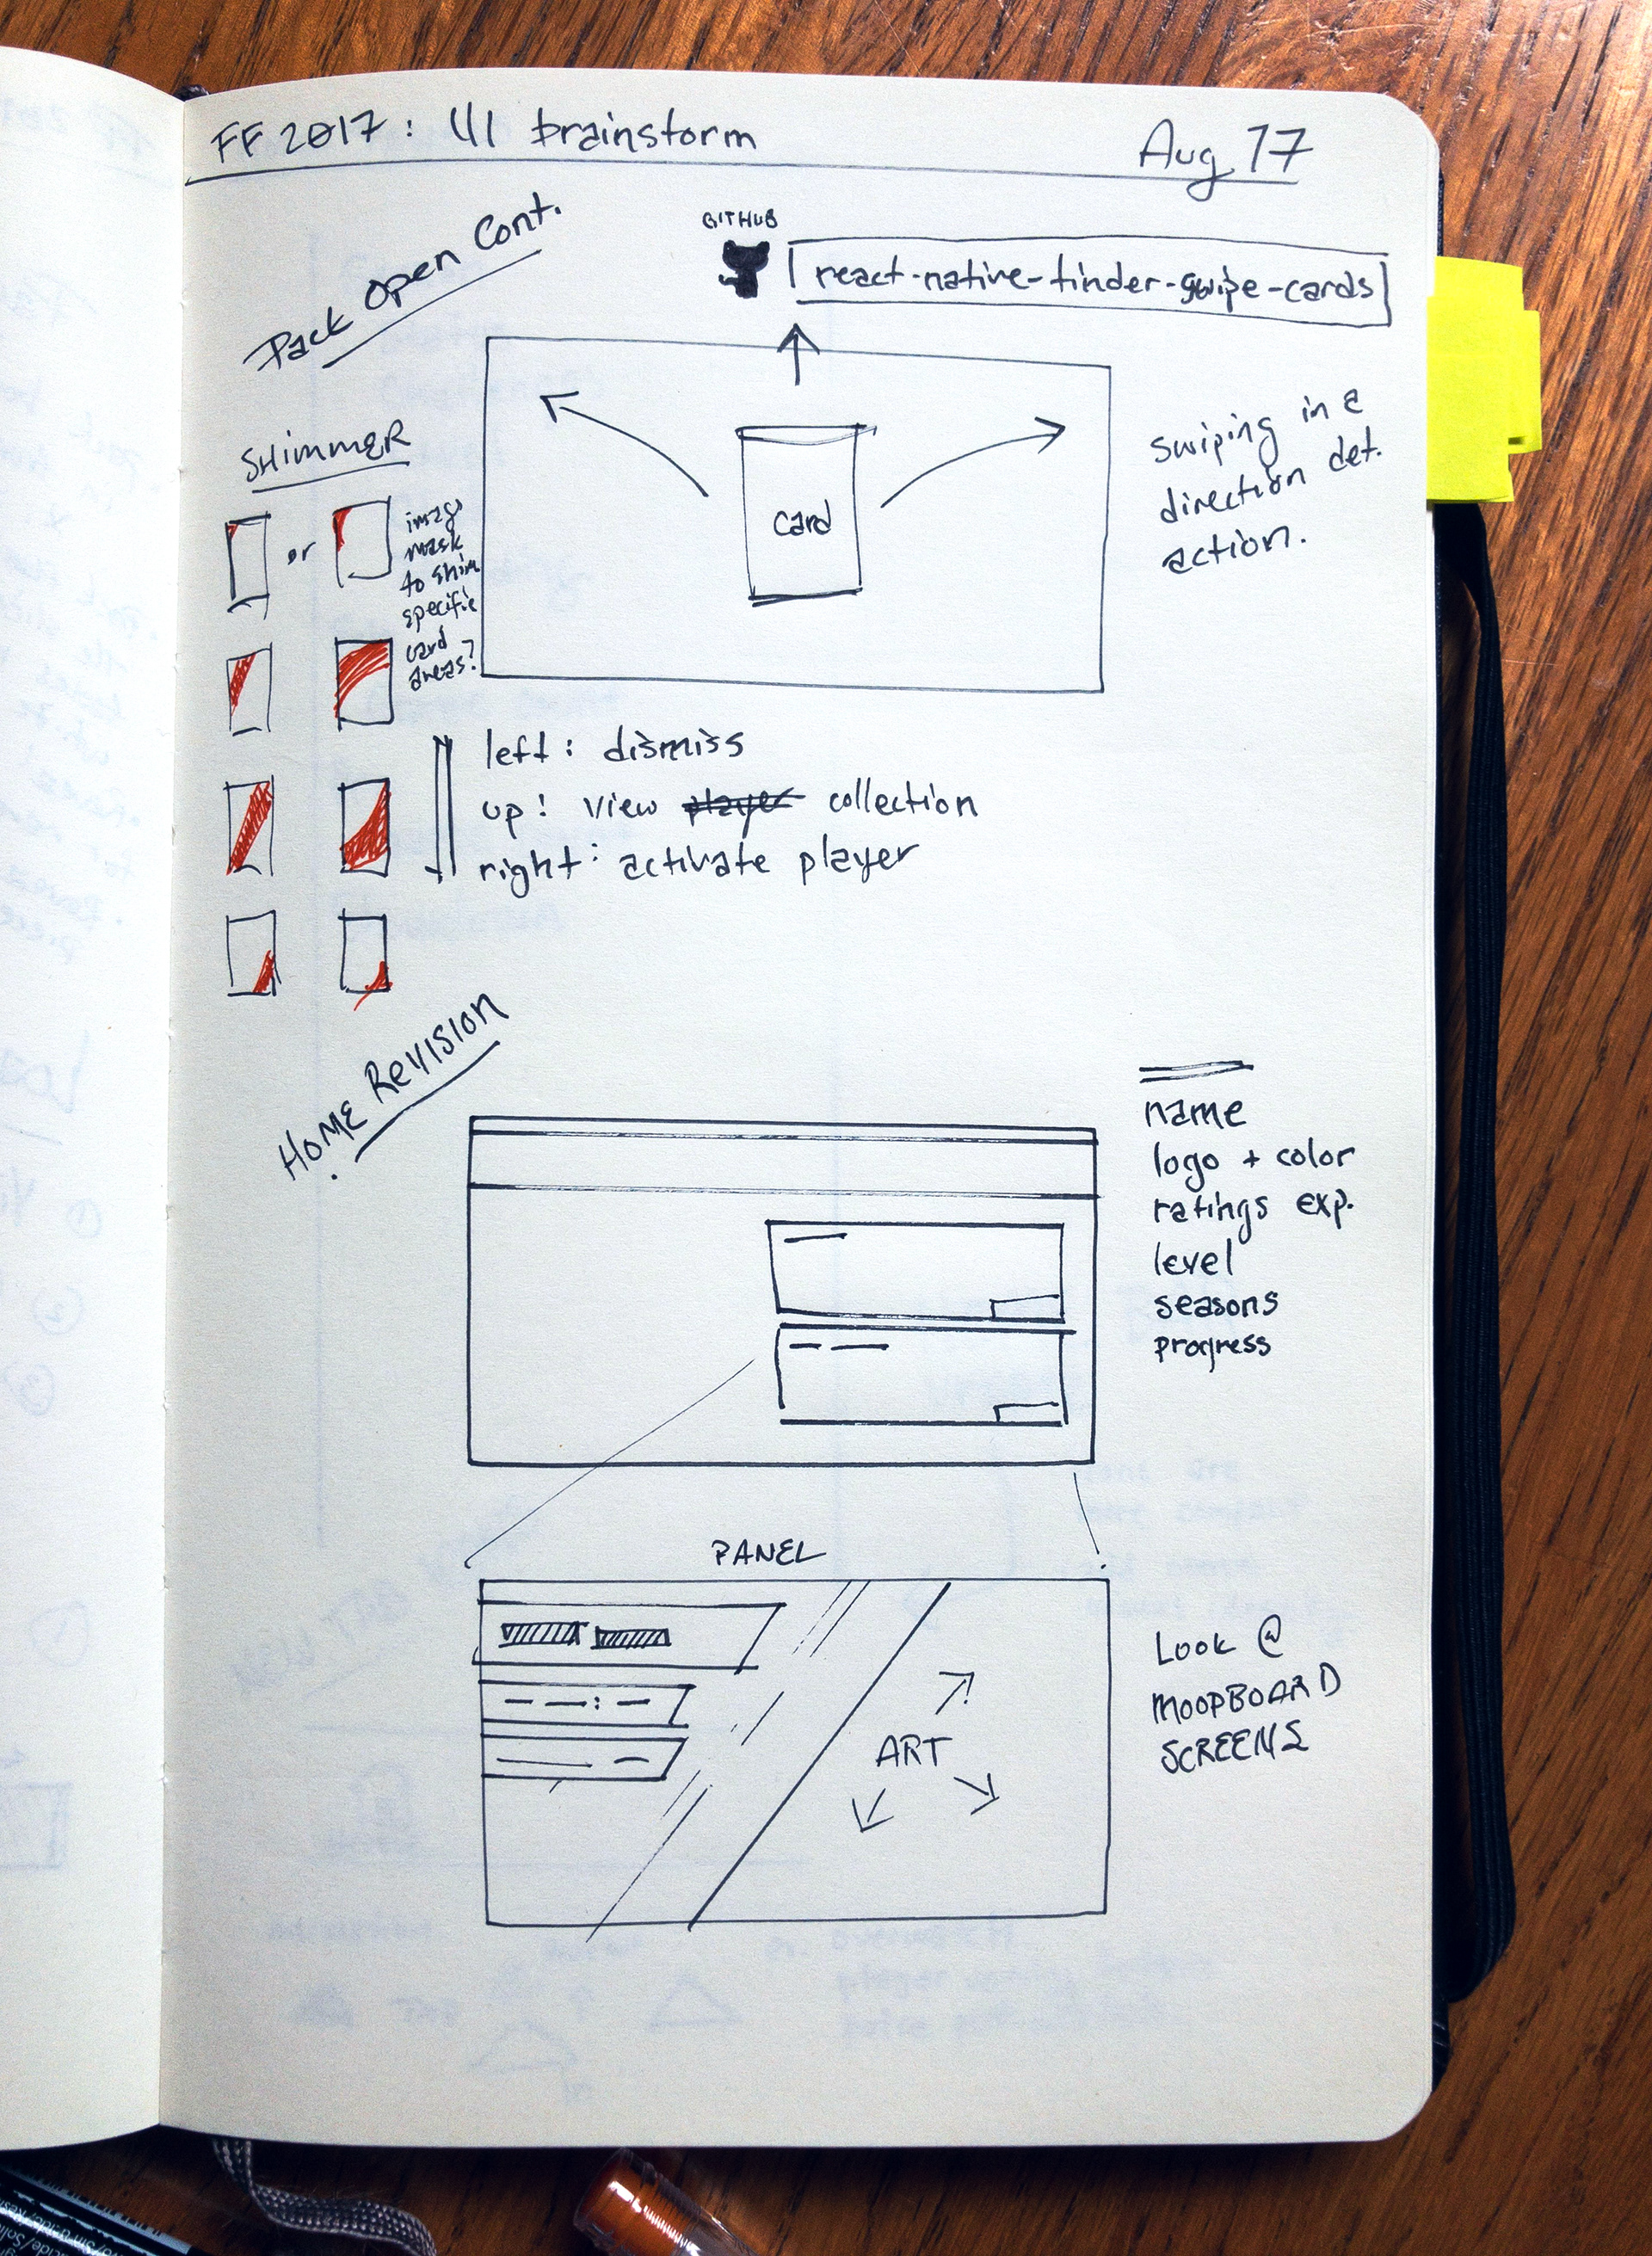 FF 2017: UI brainstorm
Aug 17
Pack Open Cont.
GITHUB
react-native-tinder-swipe-cards
SHIMMER
or
image
mask
to shim
specific
card
areas?
card
swiping in a
direction det.
action.
left: dismiss
up: view player collection
right: activate player
HOME REVISION
name
logo + color
ratings exp.
level
seasons
progress
PANEL
ART
LOOK @
MOODBOARD
SCREENS